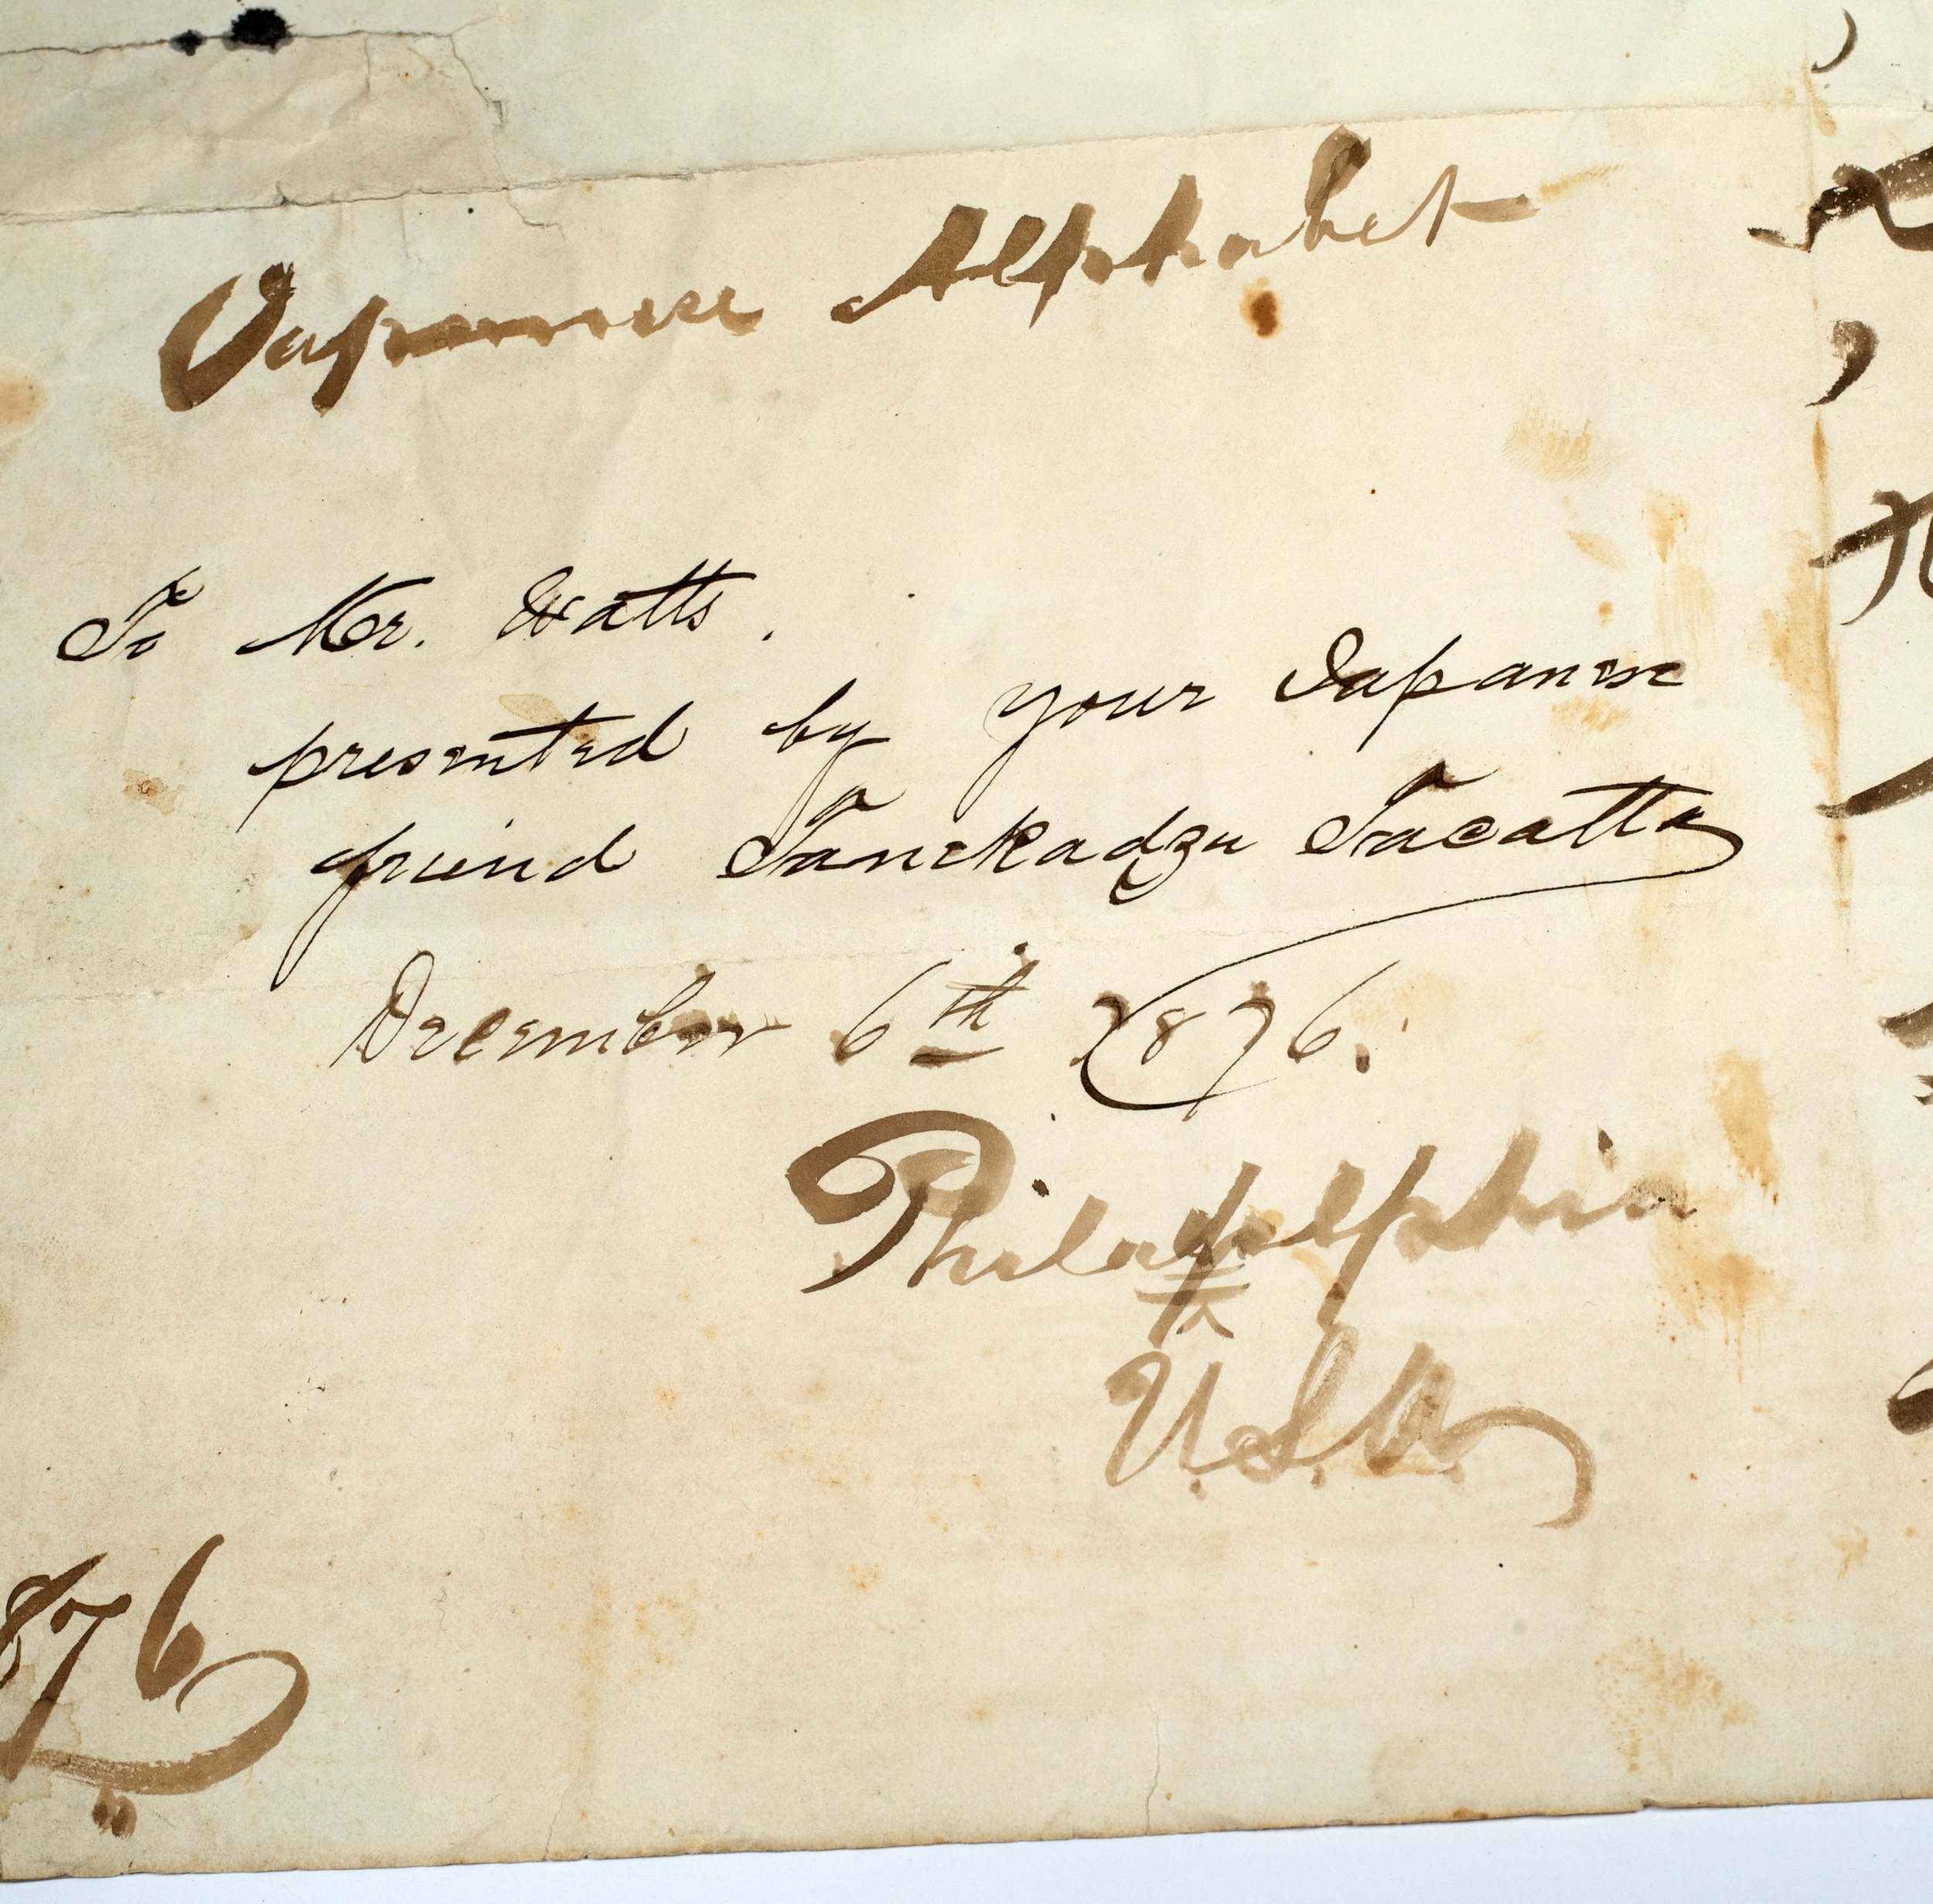 Japanese Alphabet
To Mr. Watts.
presented by your Japanese
friend Tanekadzu Tacatta
December 6th 1876.
Philadelphia
U.S.A.
876